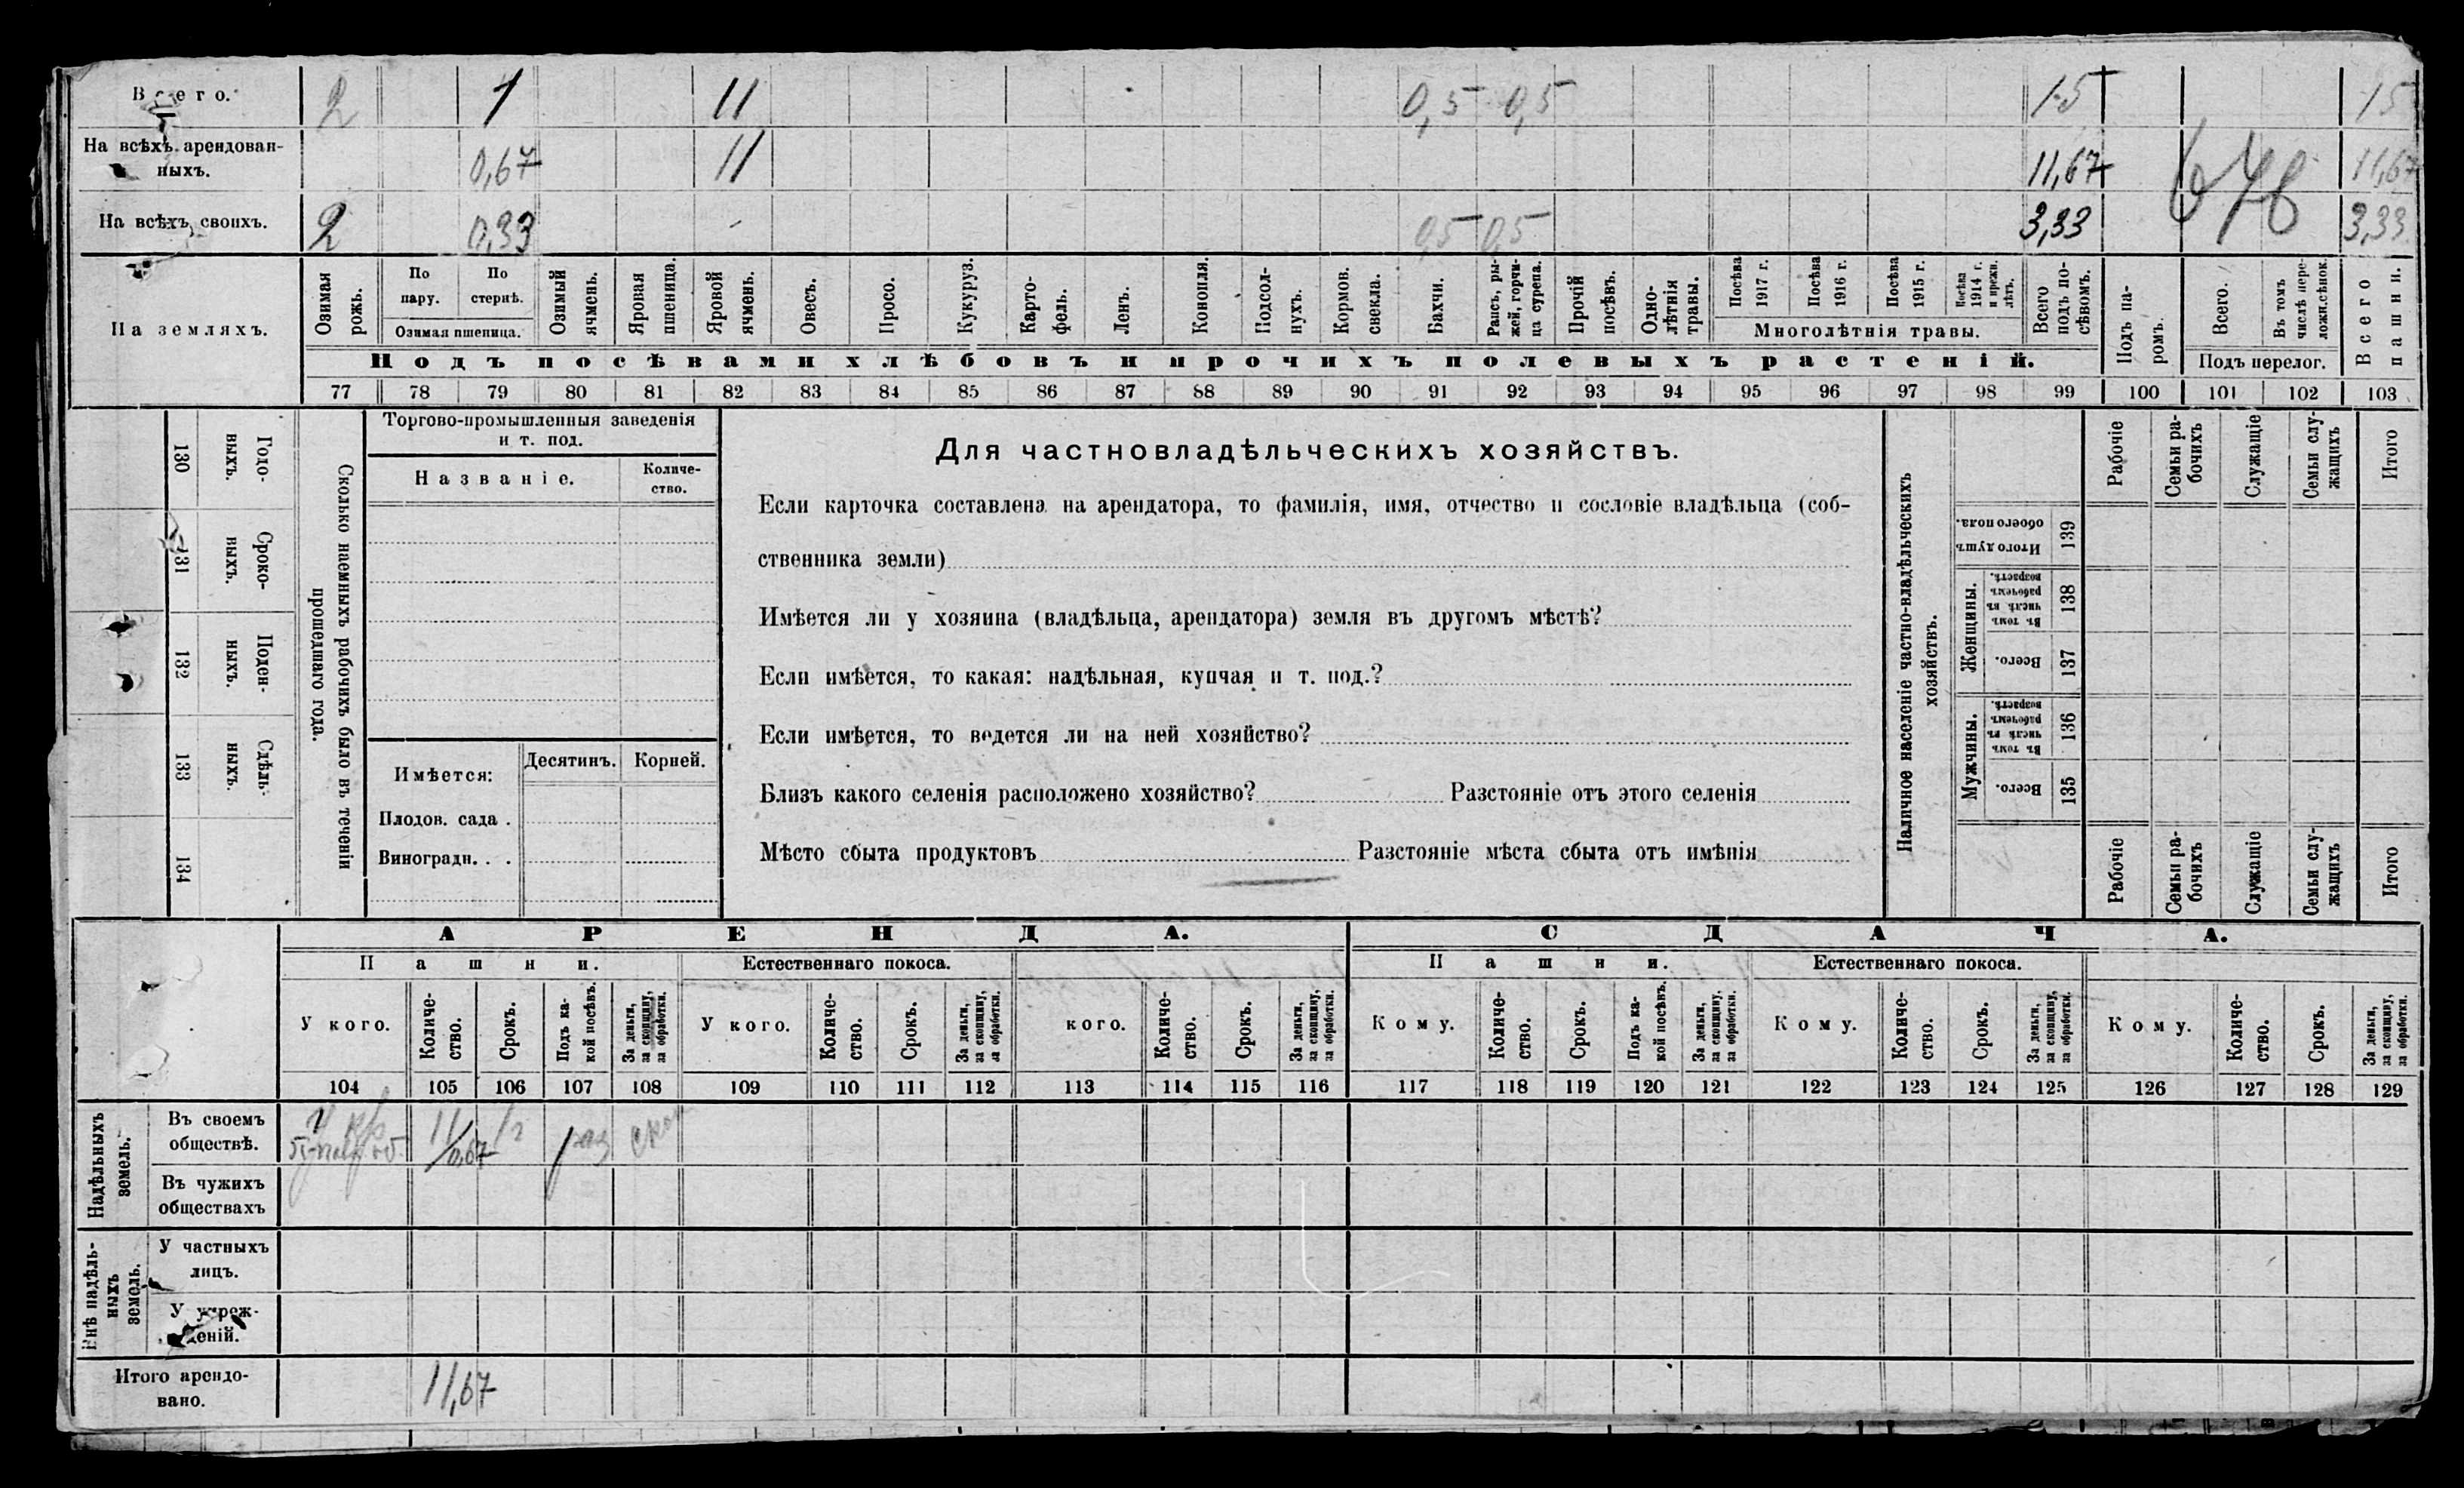 Всего. 2 1 11 0,5 0,5 15 15
На всѣхъ арендован-
ныхъ. 0,67 11 11,67 11,67
На всѣхъ своихъ. 2 0,33 0,5 0,5 3,33 3,33
На земляхъ.
Озимая рожь.
По пару.
По стернѣ.
Озимая пшеница.
Озимый ячмень.
Яровая пшеница.
Яровой ячмень.
Овесъ.
Просо.
Кукуруз.
Карто-
фель.
Ленъ.
Конопля.
Подсол-
нухъ.
Кормов. свекла.
Бахчи.
Рапсъ, ры-
жей, горчи-
ца сурепа.
Прочій посѣвъ.
Одно-
лѣтнія травы.
Посѣва 1917 г.
Посѣва 1916 г.
Посѣва 1915 г.
Посѣва 1914 г. и прежн. лѣтъ.
Многолѣтнія травы.
Всего подъ по-
сѣвомъ.
Подъ посѣвами хлѣбовъ и прочихъ полевыхъ растеній.
Подъ па-
ромъ.
Всего.
Въ томъ числѣ пере-
ложн.сѣнок.
Подъ перелог.
Всего пашни.
77 78 79 80 81 82 83 84 85 86 87 88 89 90 91 92 93 94 95 96 97 98 99 100 101 102 103
130 Годо-
выхъ.
131 Сроко-
выхъ.
132 Поден-
ныхъ.
133 Сдѣль-
ныхъ.
134
Сколько наемныхъ рабочихъ было въ теченіи
прошедшаго года.
Торгово-промышленныя заведенія
и т. под.
Названіе.
Количе-
ство.
Имѣется: Десятинъ. Корней.
Плодов. сада .
Виноградн. . .
Для частновладѣльческихъ хозяйствъ.
Если карточка составлена на арендатора, то фамилія, имя, отчество и сословіе владѣльца (соб-
ственника земли)
Имѣется ли у хозяина (владѣльца, арендатора) земля въ другомъ мѣстѣ?
Если имѣется, то какая: надѣльная, купчая и т. под.?
Если имѣется, то ведется ли на ней хозяйство?
Близъ какого селенія расположено хозяйство? Разстояніе отъ этого селенія
Мѣсто сбыта продуктовъ Разстояніе мѣста сбыта отъ имѣнія
Наличное населеніе частно-владѣльческихъ
хозяйствъ.
Рабочіе
Семьи ра-
бочихъ
Служащіе
Семьи слу-
жащихъ
Итого
Итого душъ обоего пола. 139
Женщины.
Въ томъ числѣ въ рабочемъ возрастѣ. 138
Всего. 137
Мужчины.
Въ томъ числѣ въ рабочемъ возрастѣ. 136
Всего. 135
Рабочіе
Семьи ра-
бочихъ
Служащіе
Семьи слу-
жащихъ
Итого
АРЕНДА. СДАЧА.
Пашни. Естественнаго покоса. Пашни. Естественнаго покоса.
У кого.
Количе-
ство.
Срокъ.
Подъ ка-
кой посѣвъ.
За деньги, за скопщину, за обработки.
У кого.
Количе-
ство.
Срокъ.
За деньги, за скопщину, за обработки.
кого.
Количе-
ство.
Срокъ.
За деньги, за скопщину, за обработки.
Кому.
Количе-
ство.
Срокъ.
Подъ ка-
кой посѣвъ.
За деньги, за скопщину, за обработки.
Кому.
Количе-
ство.
Срокъ.
За деньги, за скопщину, за обработки.
Кому.
Количе-
ство.
Срокъ.
За деньги, за скопщину, за обработки.
104 105 106 107 108 109 110 111 112 113 114 115 116 117 118 119 120 121 122 123 124 125 126 127 128 129
Надѣльныхъ
земель.
Въ своемъ
обществѣ. 11 1г
0,67 раз скоп
Въ чужихъ
обществахъ
Внѣ надѣль-
ныхъ
земель.
У частныхъ
лицъ.
У учреж-
деній.
Итого арендо-
вано. 11,67